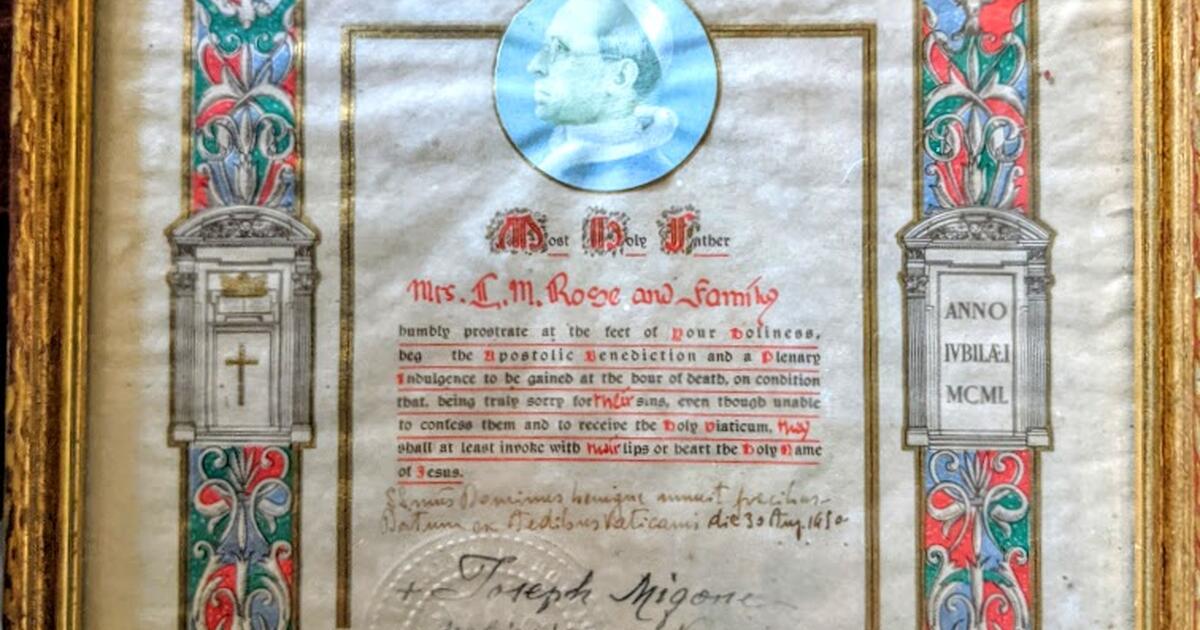 Most Holy Father
Mrs. C. M. Rose and Family
humbly prostrate at the feet of Your Holiness,
beg the Apostolic Benediction and a Plenary
Indulgence to be gained at the hour of death, on condition
that, being truly sorry for their sins, even though unable
to confess them and to receive the Holy Viaticum, they
shall at least invoke with their lips or heart the Holy Name
of Jesus.
Ssmus Dominus benigne annuit precibus
Datum ex Aedibus Vaticanis die 30 Aug. 1950
+ Joseph Migone
ANNO
IVBILÆI
MCML